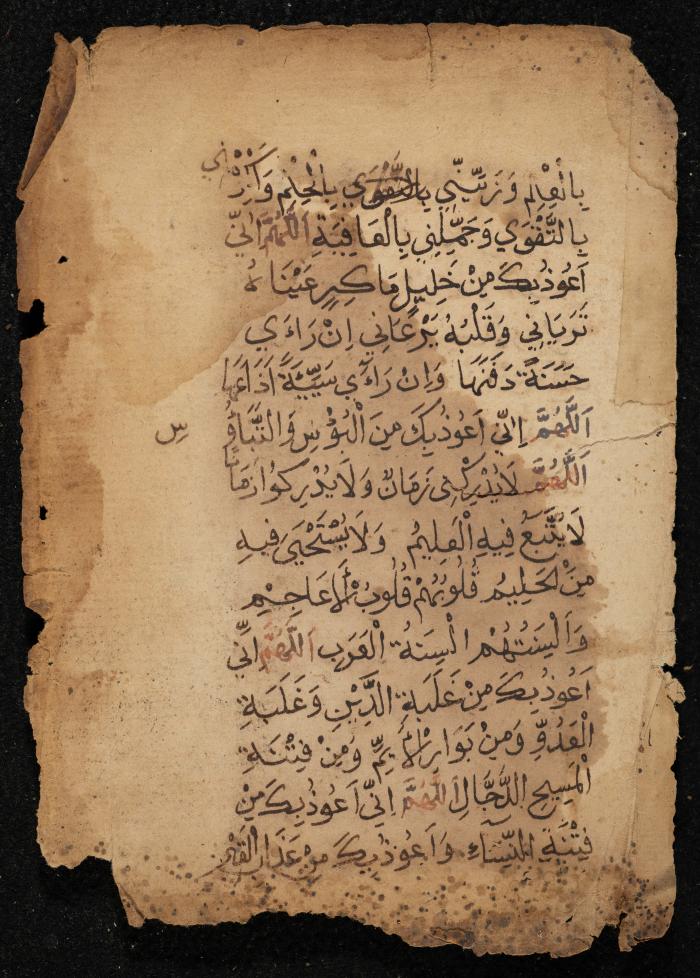 بِالْعِلْمِ وَزَيِّنِّي بِالْحِلْمِ وَاَكْرِمْنِي
بِالتَّقْوَي وَجَمِّلْنِي بِالْعَافِيَةِ اَللّٰهُمَّ اِنِّي
اَعُوْذُبِكَ مِنْ خَلِيلٍ مَاكِرٍ عَيْنَاهُ
تَرَيَانِي وَقَلْبُهُ يَرْعَانِي اِنْ رَاَي
حَسَنَةً دَفَنَهَا وَاِنْ رَاَي سَيِّئَةً اَذَاعَهَا
اَللّٰهُمَّ اِنِّي اَعُوْذُبِكَ مِنَ الْبُؤْسِ وَالتَّبَاؤُ
س
اَللّٰهُمَّ لَايُدْرِكْنِي زَمَانٌ وَلَايُدْرِكُوْا زَمَانًا
لَايُتَّبَعُ فِيْهِ الْعَلِيْمُ وَلَايُسْتَحْيَي فِيْهِ
مِنْ لْحَلِيْمُ قُلُوْبُهُمْ قُلُوْبُ لْاَعَاجِمِ
وَاَلْسِنَتُهُمْ اَلْسِنَةُ الْعَرَبِ اَللّٰهُمَّ اِنِّي
اَعُوْذُبِكَ مِنْ غَلَبَةِ الدَّيْنِ وَغَلَبَةِ
الْعَدُوِّ وَمِنْ بَوَارِلْاَيِّمِ وَمِنْ فِتْنَةِ
الْمَسِيْحِ الدَّجَّالِ اَللّٰهُمَّ اِنِّي اَعُوْذُبِكَ مِنْ
فِتْنَةِ النِّسَاءِ وَاَعُوْذُبِكَ مِنْ عَذَابِ الْقَبْرِ